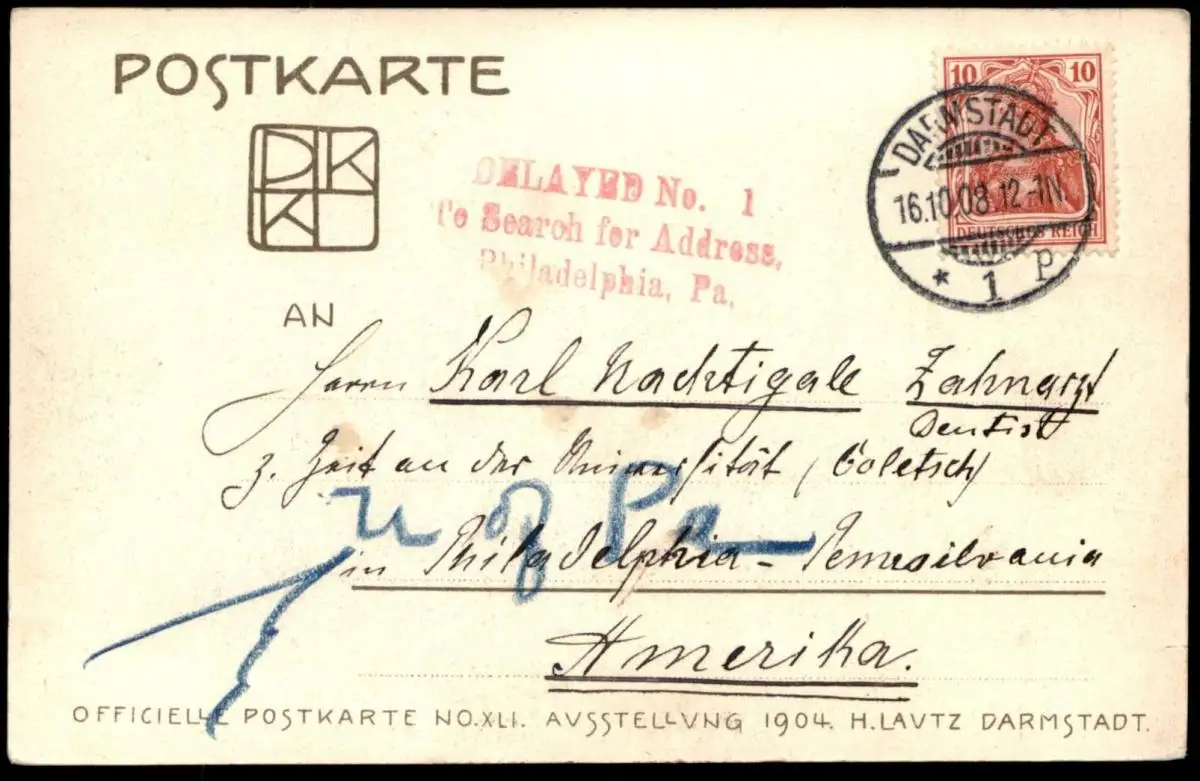 POSTKARTE
DKK
DELAYED No. 1
To Search for Address,
Philadelphia, Pa.
10 10
DARMSTADT
16.10.08.12-1N.
DEUTSCHES REICH
* 1 P
AN
Herrn Karl Nachtigale Zahnarzt
Dentist
z. Zeit an der Universität (Goletsch)
U of Pa
in Philadelphia - Pennsilvania
Amerika.
OFFICIELLE POSTKARTE NO.XLI. AVSSTELLVNG 1904. H.LAVTZ DARMSTADT.